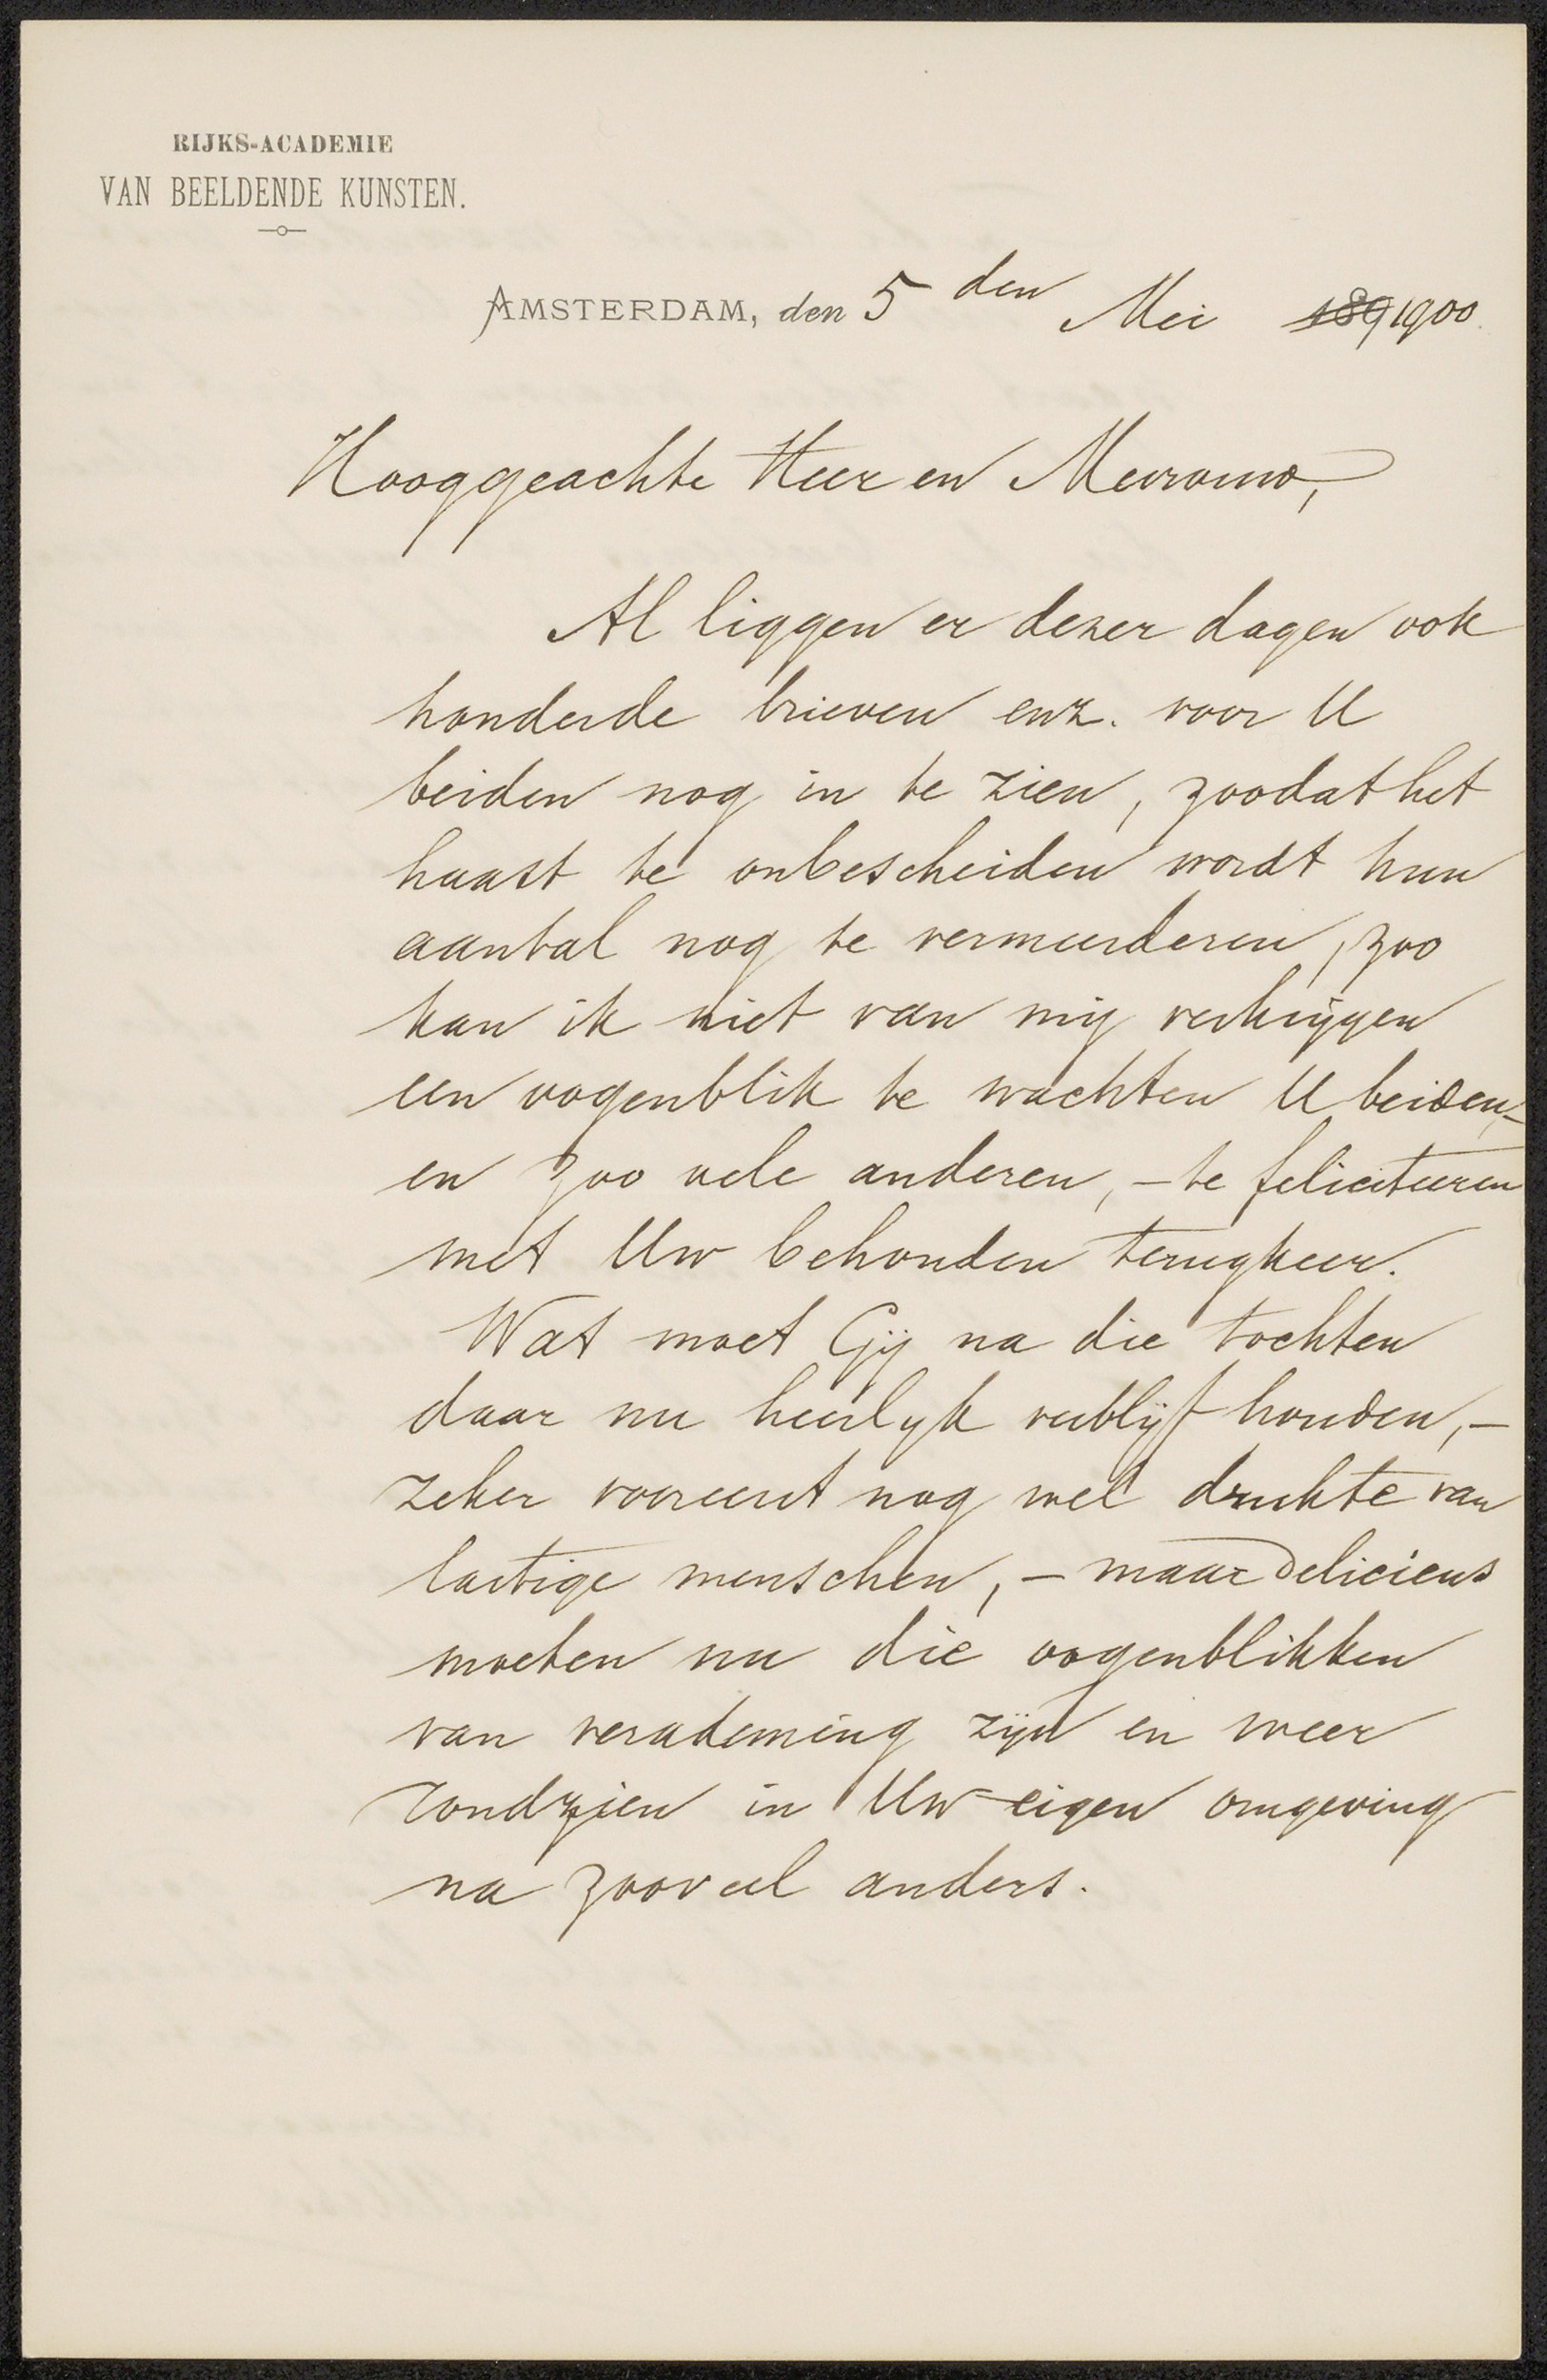 RIJKS-ACADEMIE
VAN BEELDENDE KUNSTEN.
AMSTERDAM, den 5 den Mei 189 1900
Hooggeachte Heer en Mevrouw,
Al liggen er dezer dagen ook
honderde brieven enz. voor U
beiden nog in te zien, zoodat het
haast te onbescheiden wordt hun
aantal nog te vermeerderen, zoo
kan ik niet van mij verkrijgen
een oogenblik te wachten U beiden,-
en zoo vele anderen, - te feliciteeren
met Uw behouden terugkeer.
Wat moet Gij na die tochten
daar nu heerlyk verblijf houden, -
zeker vooreerst nog wel drukte van
lastige menschen, - maar delicieus
moeten nu die oogenblikken
van verademing zijn en weer
rondzien in Uw eigen omgeving
na zooveel anders.